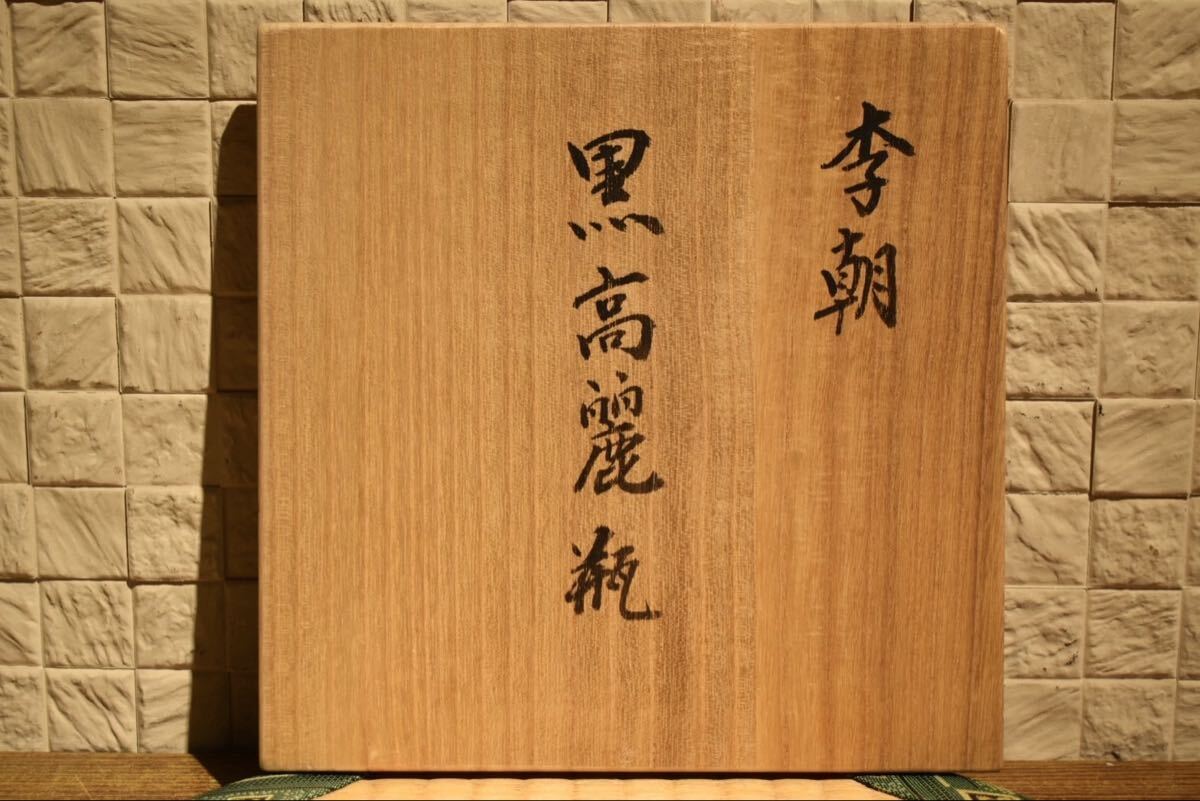 李朝
黒高麗瓶